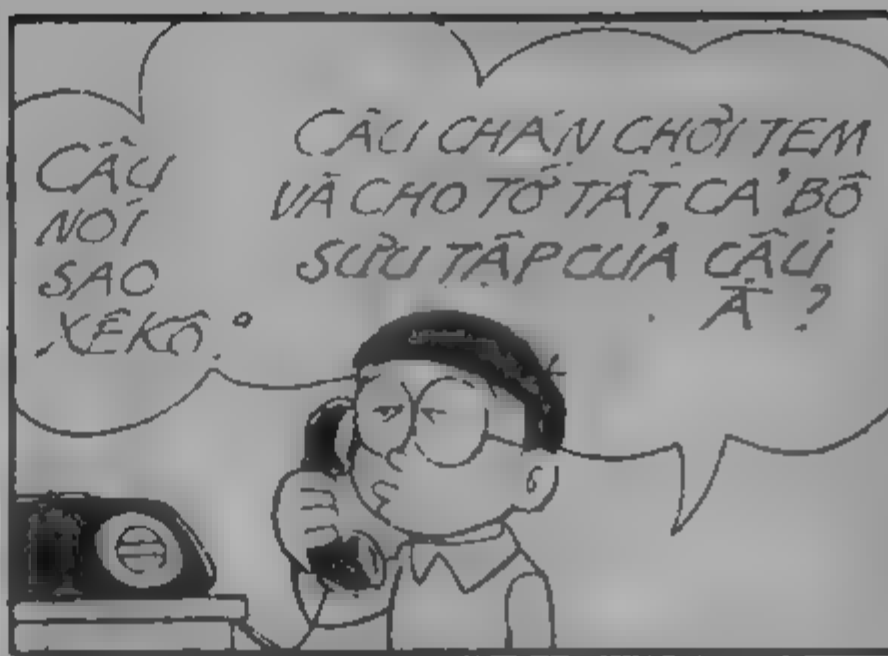 CẬU
NÓI
SAO
XÊKÔ?
CẬU CHÁN CHƠI TEM
VÀ CHO TỚ TẤT CẢ BỘ
SƯU TẬP CỦA CẬU
À?